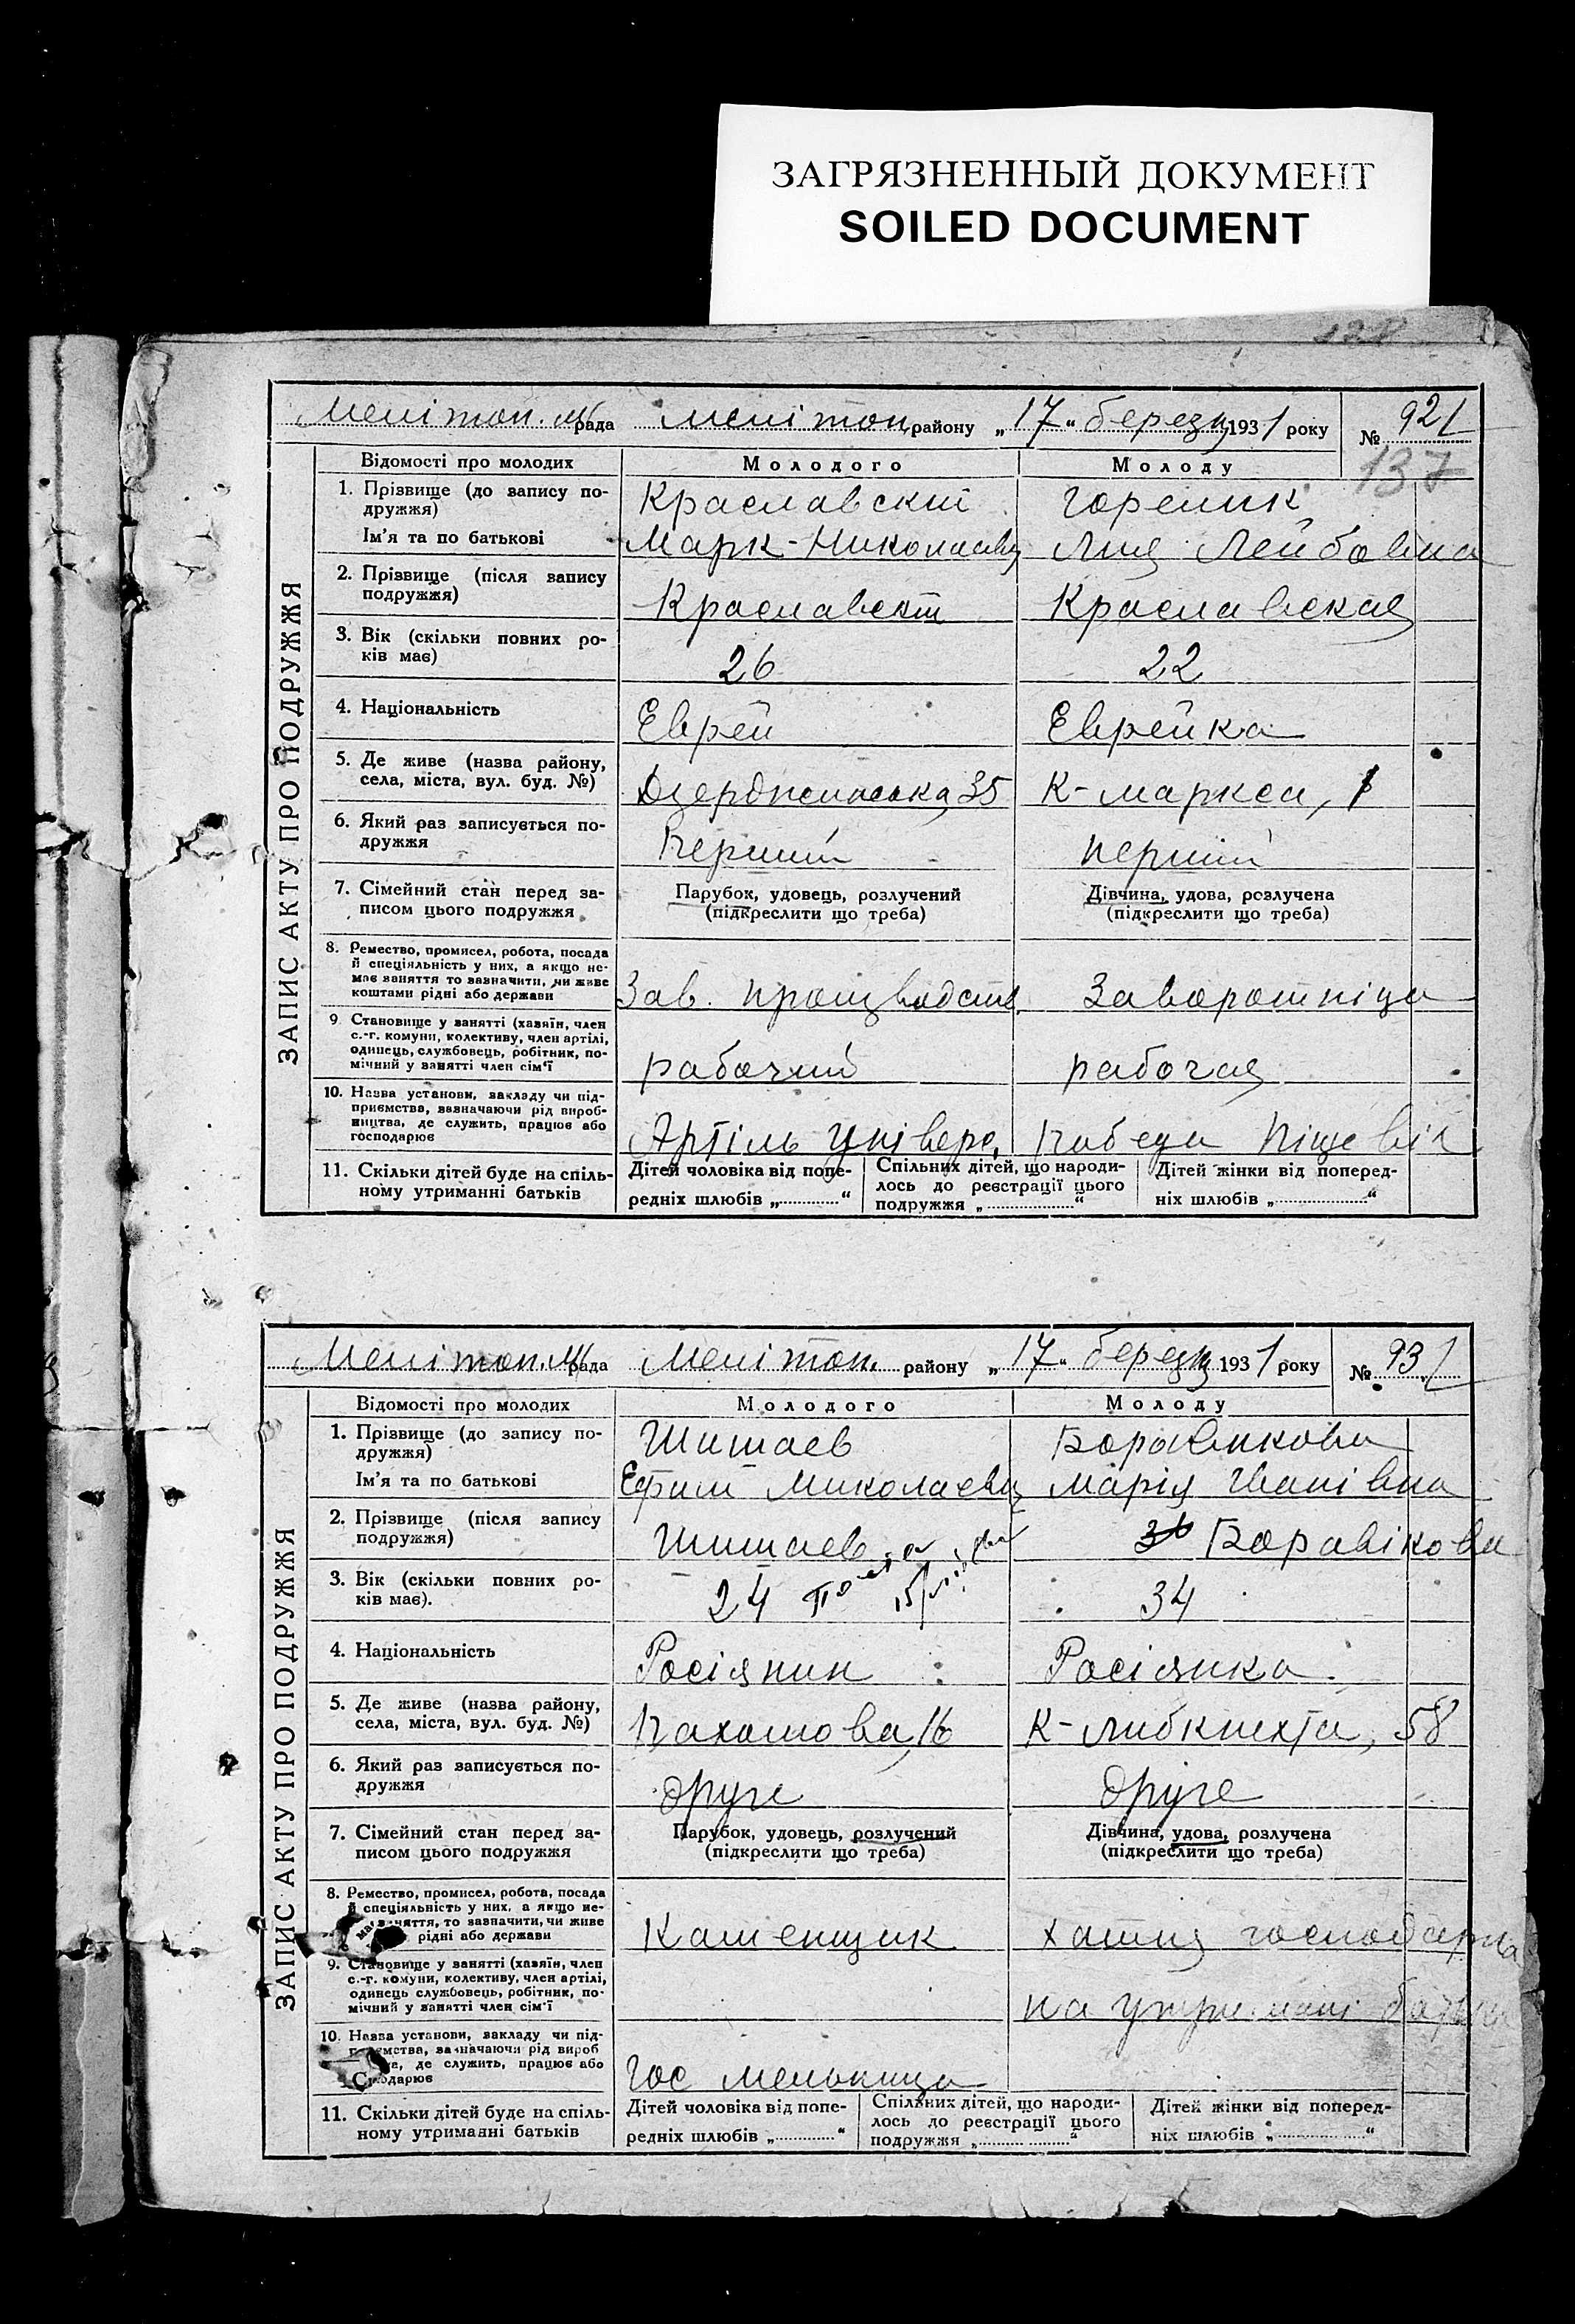 ЗАГРЯЗНЕННЫЙ ДОКУМЕНТ
SOILED DOCUMENT
Мелітоп. м/рада Мелітоп. району „17" березня 1931 року № 92/
137
ЗАПИС АКТУ ПРО ПОДРУЖЖЯ
Відомості про молодих Молодого Молоду
1. Прізвище (до запису по-
дружжя) Краславский Горелик
Ім'я та по батькові Марк-Николаевич Лия Лейбовна
2. Прізвище (після запису
подружжя) Краславский Краславская
3. Вік (скільки повних ро-
ків має) 26 22
4. Національність Еврей Еврейка
5. Де живе (назва району,
села, міста, вул. буд. №) Дзержинська, 35 К-Маркса, 1
6. Який раз записується по-
дружжя Перший Перший
7. Сімейний стан перед за-
писом цього подружжя Парубок, удовець, розлучений
(підкреслити що треба) Дівчина, удова, розлучена
(підкреслити що треба)
8. Ремество, промисел, робота, посада
й спеціяльність у них, а якщо не-
має заняття то зазначити, чи живе
коштами рідні або держави Зав. производств. Заворотніца
9. Становище у занятті (хазяїн, член
с.-г. комуни, колективу, член артілі,
одинець, службовець, робітник, по-
мічний у занятті член сім'ї рабочий рабочая
10. Назва установи, закладу чи під-
приємства, зазначаючи рід вироб-
ництва, де служить, працює або
господарює Артіль Універс. Победа
11. Скільки дітей буде на спіль-
ному утриманні батьків Дітей чоловіка від попе-
редніх шлюбів „............“ Спільних дітей, що народи-
лось до реєстрації цього
подружжя „............“ Дітей жінки від поперед-
ніх шлюбів „............“
Мелітоп. м/рада Мелітоп. району „17" березня 1931 року № 93/
ЗАПИС АКТУ ПРО ПОДРУЖЖЯ
Відомості про молодих Молодого Молоду
1. Прізвище (до запису по-
дружжя) Шишаев Боравикова
Ім'я та по батькові Ефим Миколаевич Марія Іванівна
2. Прізвище (після запису
подружжя) Шишаев Боравікова
3. Вік (скільки повних ро-
ків має). 24 34
4. Національність Росіянин Росіянка
5. Де живе (назва району,
села, міста, вул. буд. №) Пахомова, 16 К-Либкнехта, 58
6. Який раз записується по-
дружжя друге друге
7. Сімейний стан перед за-
писом цього подружжя Парубок, удовець, розлучений
(підкреслити що треба) Дівчина, удова, розлучена
(підкреслити що треба)
8. Ремество, промисел, робота, посада
й спеціяльність у них, а якщо не-
має заняття, то зазначити, чи живе
рідні або держави Каменщик хатня господарка
9. Становище у занятті (хазяїн, член
с.-г. комуни, колективу, член артілі,
одинець службовець, робітник, по-
мічний у занятті член сім'ї на утримані
10. Назва установи, закладу чи під-
приємства, зазначаючи рід вироб
де служить, працює або
господарює Гос мельница
11. Скільки дітей буде на спіль-
ному утриманні батьків Дітей чоловіка від попе-
редніх шлюбів „............“ Спільних дітей, що народи-
лось до реєстрації цього
подружжя „............“ Дітей жінки від поперед-
ніх шлюбів „............“